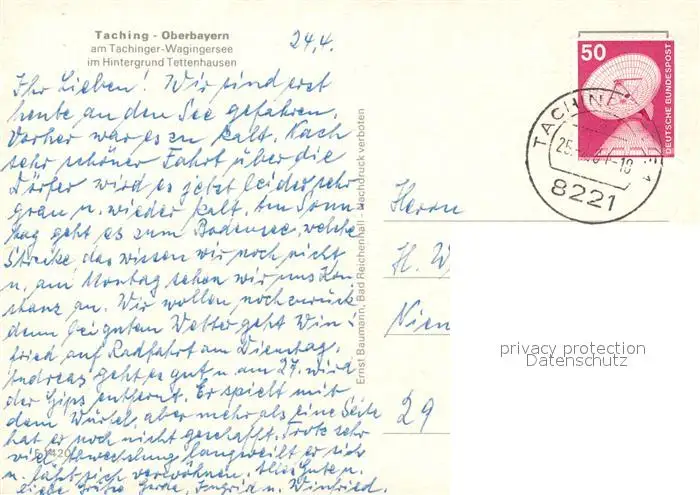 Taching - Oberbayern
am Tachinger-Wagingersee
im Hintergrund Tettenhausen
24.4.
Ihr Lieben! Wir sind erst
heute an den See gefahren.
Vorher war es zu kalt. Nach
sehr schöner Fahrt über die
Dörfer wird es jetzt leider sehr
grau u. wieder kalt. Am Sonn-
tag geht es zum Bodensee, welche
Strecke das wissen wir noch nicht
u. am Montag sehen wir uns Kon-
stanz an. Wir wollen noch zurück
denn bei gutem Wetter geht Win-
fried auf Radfahrt am Dienstag.
Andreas geht es gut u. am 27. wird
der Gips entfernt. Er spielt mit
dem Würfel, aber mehr als eine Seite
hat er noch nicht geschafft. Trotz sehr
viel Abwechslung langweilt er sich
u. läßt sich verwöhnen. Alles Gute u.
liebe Grüße Gerda, Ingrid u. Winfried.
1420
Ernst Baumann, Bad Reichenhall - Nachdruck verboten
50
DEUTSCHE BUNDESPOST
TACHING
25.
8221
Herrn
H. W
Nien
29
privacy protection
Datenschutz